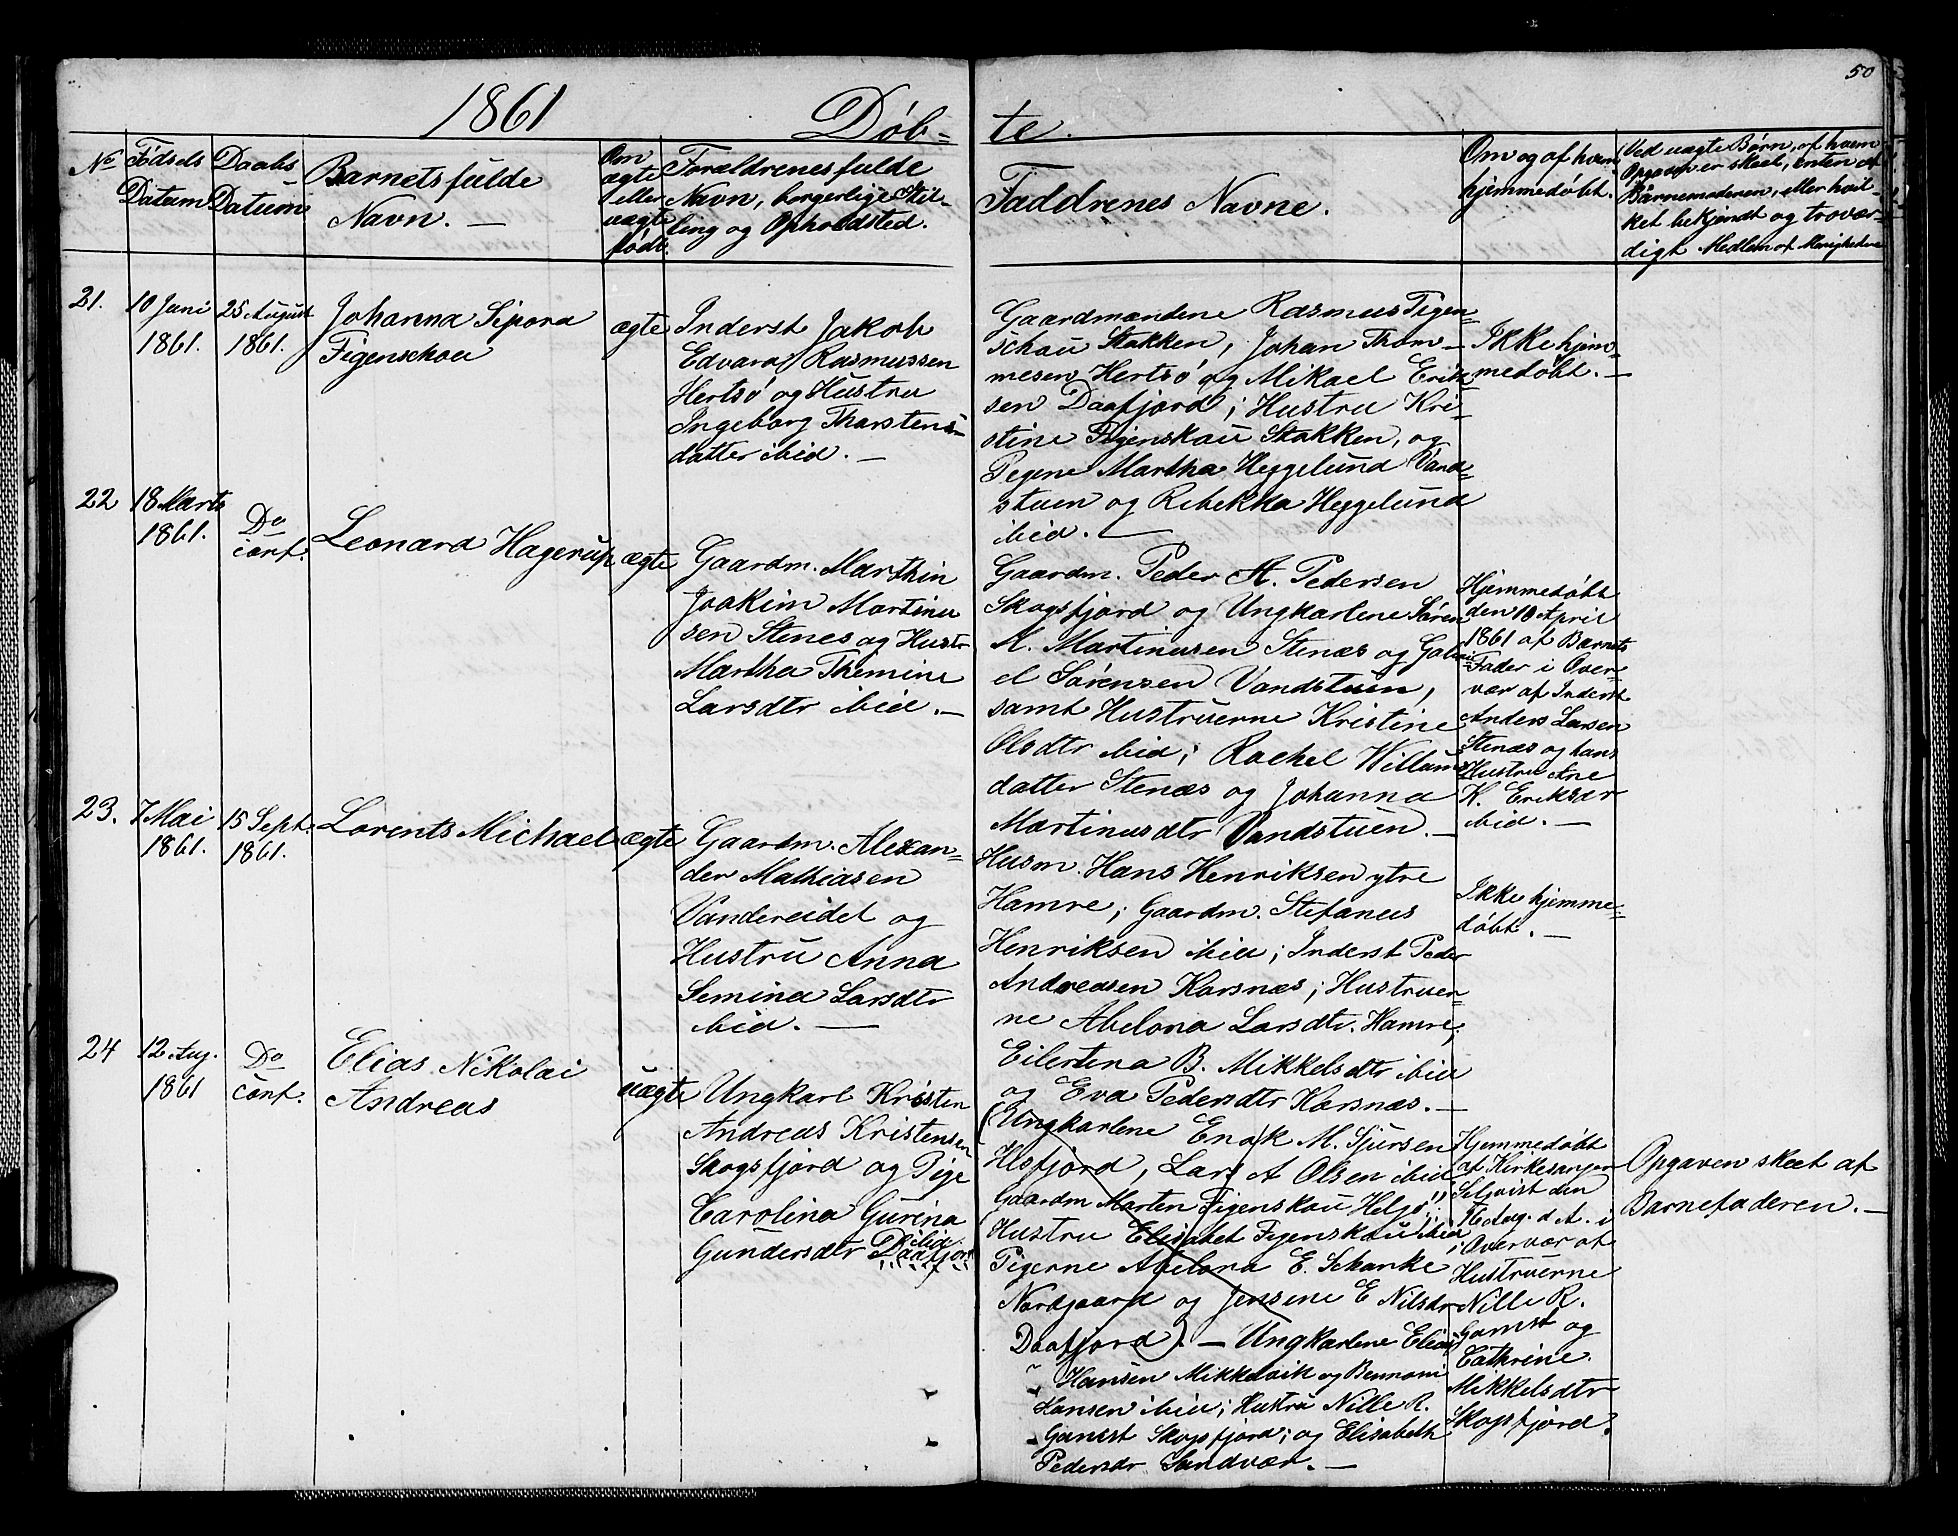 50
1861 Døb- te.
No
Fødsels Datum
Daabs Datum
Barnets fulde
Navn. -
Om
ægte
eller
uægte
født.
Forældrenes fulde
Navn, borgerlige Stil-
ling og Opholdsted.
Faddrenes Navne.
Om og af hvem
hjemmedøbt.
Ved uægte Børn, af hvem
Opgaven er skeet, enten af
Barnemoderen, eller hvil-
ket bekjendt og trovær-
digt Medlem af Menigheden
21.
10 Juni
1861.
25 August
1861.
Johanna Sipora
Figenschou
ægte
Inderst Jakob
Edvard Rasmussen
Hertsø og Hustru
Ingeborg Thorstens-
datter ibid. -
Gaardmændene Rasmus Figen-
schou Stakken, Johan Thom-
mesen Hertsø og Mikael Erik-
sen Daafjord; Hustru Kri-
stine Figenskou Stakken, og
Pigene Martha Heggelund Vand-
stuen og Rebekka Heggelund
ibid. -
Ikke hjem-
medøbt. -
22
18 Marts
1861.
Do
conf.
Leonard Hagerup
ægte
Gaardm. Marthin
Joakim Martinu
sen Stenes og Hustr
Martha Themine
Larsdtr ibid. -
Gaardm. Peder A. Pedersen
Skogsfjord og Ungkarlene Søren
M. Martinusen Stenæs og Gabri-
el Sørensen Vandstuen,
samt Hustruerne Kristine
Olsdtr ibid; Rachel Willums
datter Stenæs og Johanna
Martinusdtr Vandstuen. -
Hjemmedøbt
den 10 April
1861 af Barnets
Fader i Over-
vær af Inderst
Anders Larsen
Stenæs og hans
Hustru Ane
K. Eriksdr
ibid. -
23.
7 Mai
1861.
15 Sept.
1861.
Lorents Michael
ægte
Gaardm. Alexan-
der Mathiasen
Vandereidet og
Hustru Anna
Semina Larsdtr
ibid. -
Husm. Hans Henriksen ytre
Hamre; Gaardm. Stefanus
Henriksen ibid; Inderst Peder
Andreasen Karsnæs; Hustruer-
ne Abelona Larsdtr. Hamre;
Eilertina B. Mikkelsdtr ibid
og Eva Pedersdtr Karsnæs. -
Ikke hjemme-
døbt. -
24
12 Aug.
1861
Do
conf.
Elias Nikolai
Andreas
uægte
Ungkarl Kristen
Andreas Kristensen
Skogsfjord og Pige
Carolina Gurina
ibid.
Gundersdtr Daafjord
(Ungkarlene Enok M. Sjursen
Hisfjord, Lars A Olsen ibid
Gaardm Morten Figenskou Helgø;
Hustru Elisabet Figenskou ibid;
Pigerne Abelona E. Schanke
Nordgaard og Jensine E Nilsdr
Daafjord). - Ungkarlene Elias
Hansen Mikkelvik og Bennoni
Hansen ibid; Hustru Nille R.
Gamst Skogsfjord; og Elisabeth
Pedersdr Sandvær. -
Hjemmedøbt
af Kirkesanger
Selqvist den
Aug. d. A. i
Overvær af
Hustruerne
Nille R.
Gamst og
Cathrine
Mikkelsdtr
Skogsfjord.
Opgaven skeet af
Barnefaderen. -